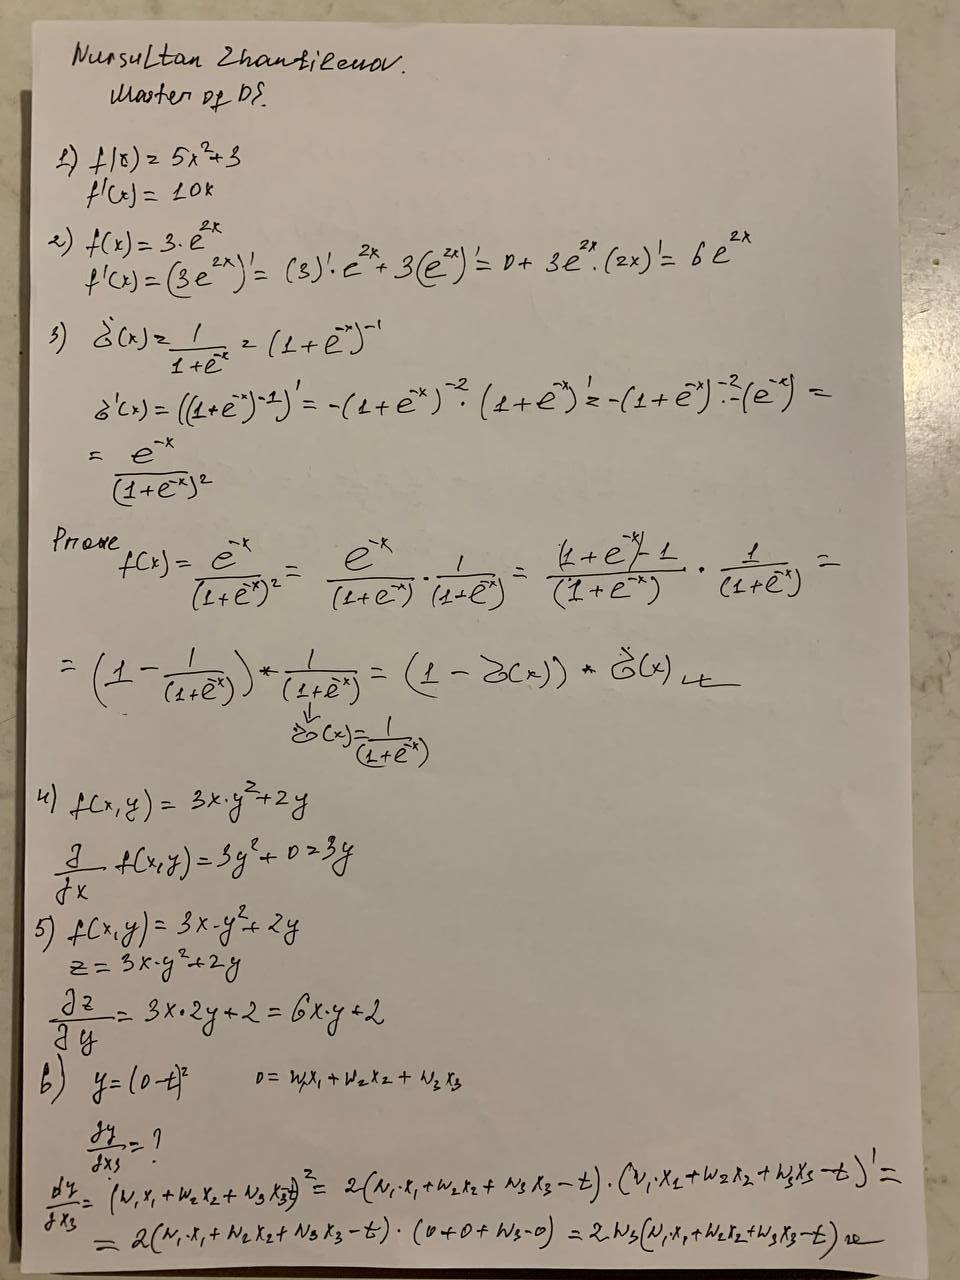 Nursultan Zhantilenov.
Master of DS.
1) f(x) = 5x²+3
f'(x) = 10x
2) f(x) = 3·e^{2x}
f'(x) = (3e^{2x})' = (3)'·e^{2x} + 3(e^{2x})' = 0 + 3e^{2x}·(2x)' = 6e^{2x}
3) σ(x) = 1/(1+e^{-x}) = (1+e^{-x})^{-1}
σ'(x) = ((1+e^{-x})^{-1})' = -(1+e^{-x})^{-2}·(1+e^{-x})' = -(1+e^{-x})^{-2}·-(e^{-x}) =
= e^{-x}/(1+e^{-x})²
Prove
f(x) = e^{-x}/(1+e^{-x})² = e^{-x}/(1+e^{-x}) · 1/(1+e^{-x}) = ((1+e^{-x})-1)/(1+e^{-x}) · 1/(1+e^{-x}) =
= (1 - 1/(1+e^{-x})) * 1/(1+e^{-x}) = (1 - σ(x)) * σ(x)
↓
σ(x) = 1/(1+e^{-x})
4) f(x,y) = 3x·y²+2y
∂/∂x f(x,y) = 3y² + 0 = 3y
5) f(x,y) = 3x·y²+2y
z = 3x·y²+2y
∂z/∂y = 3x·2y+2 = 6x·y+2
6) y = (o-t)² o = w₁x₁ + w₂x₂ + w₃x₃
∂y/∂x₃ = ?
∂y/∂x₃ = (w₁x₁ + w₂x₂ + w₃x₃-t)² = 2(w₁·x₁ + w₂x₂ + w₃x₃ - t)·(w₁·x₁ + w₂x₂ + w₃x₃ - t)' =
= 2(w₁·x₁ + w₂x₂ + w₃x₃ - t)·(0+0+w₃-0) = 2w₃(w₁·x₁+w₂x₂+w₃x₃-t)